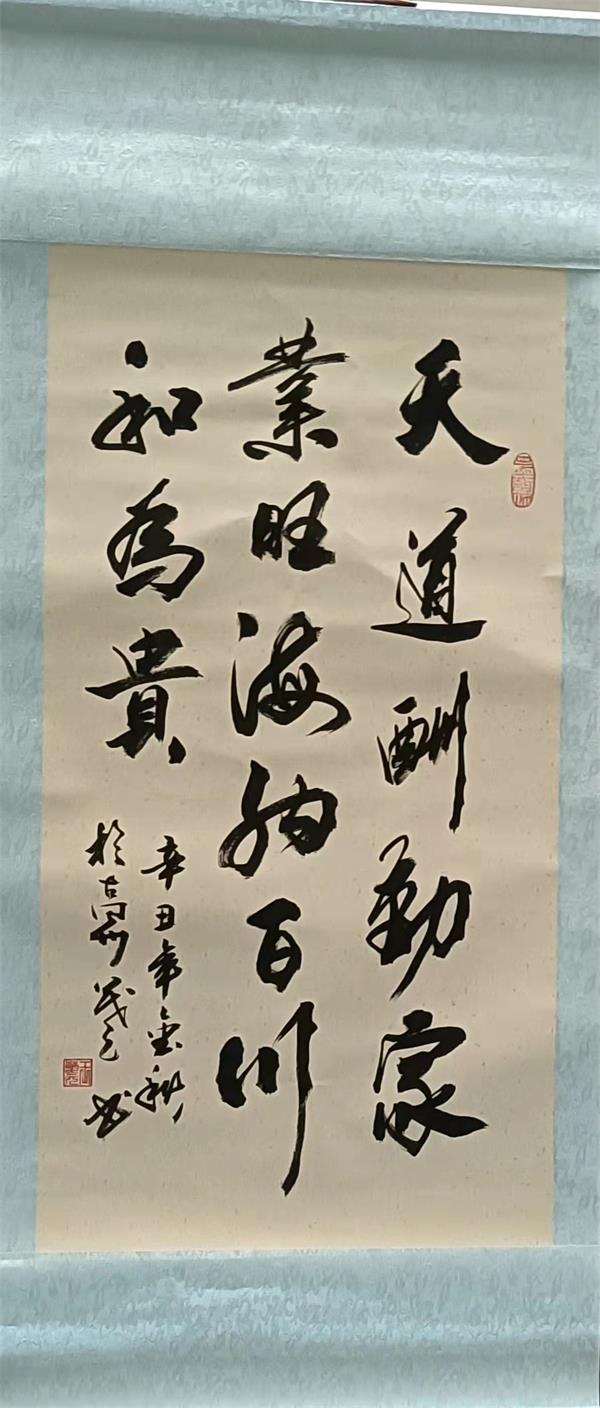 天道酬勤家
業旺海納百川
和為貴
辛丑年金秋
於高州茂書